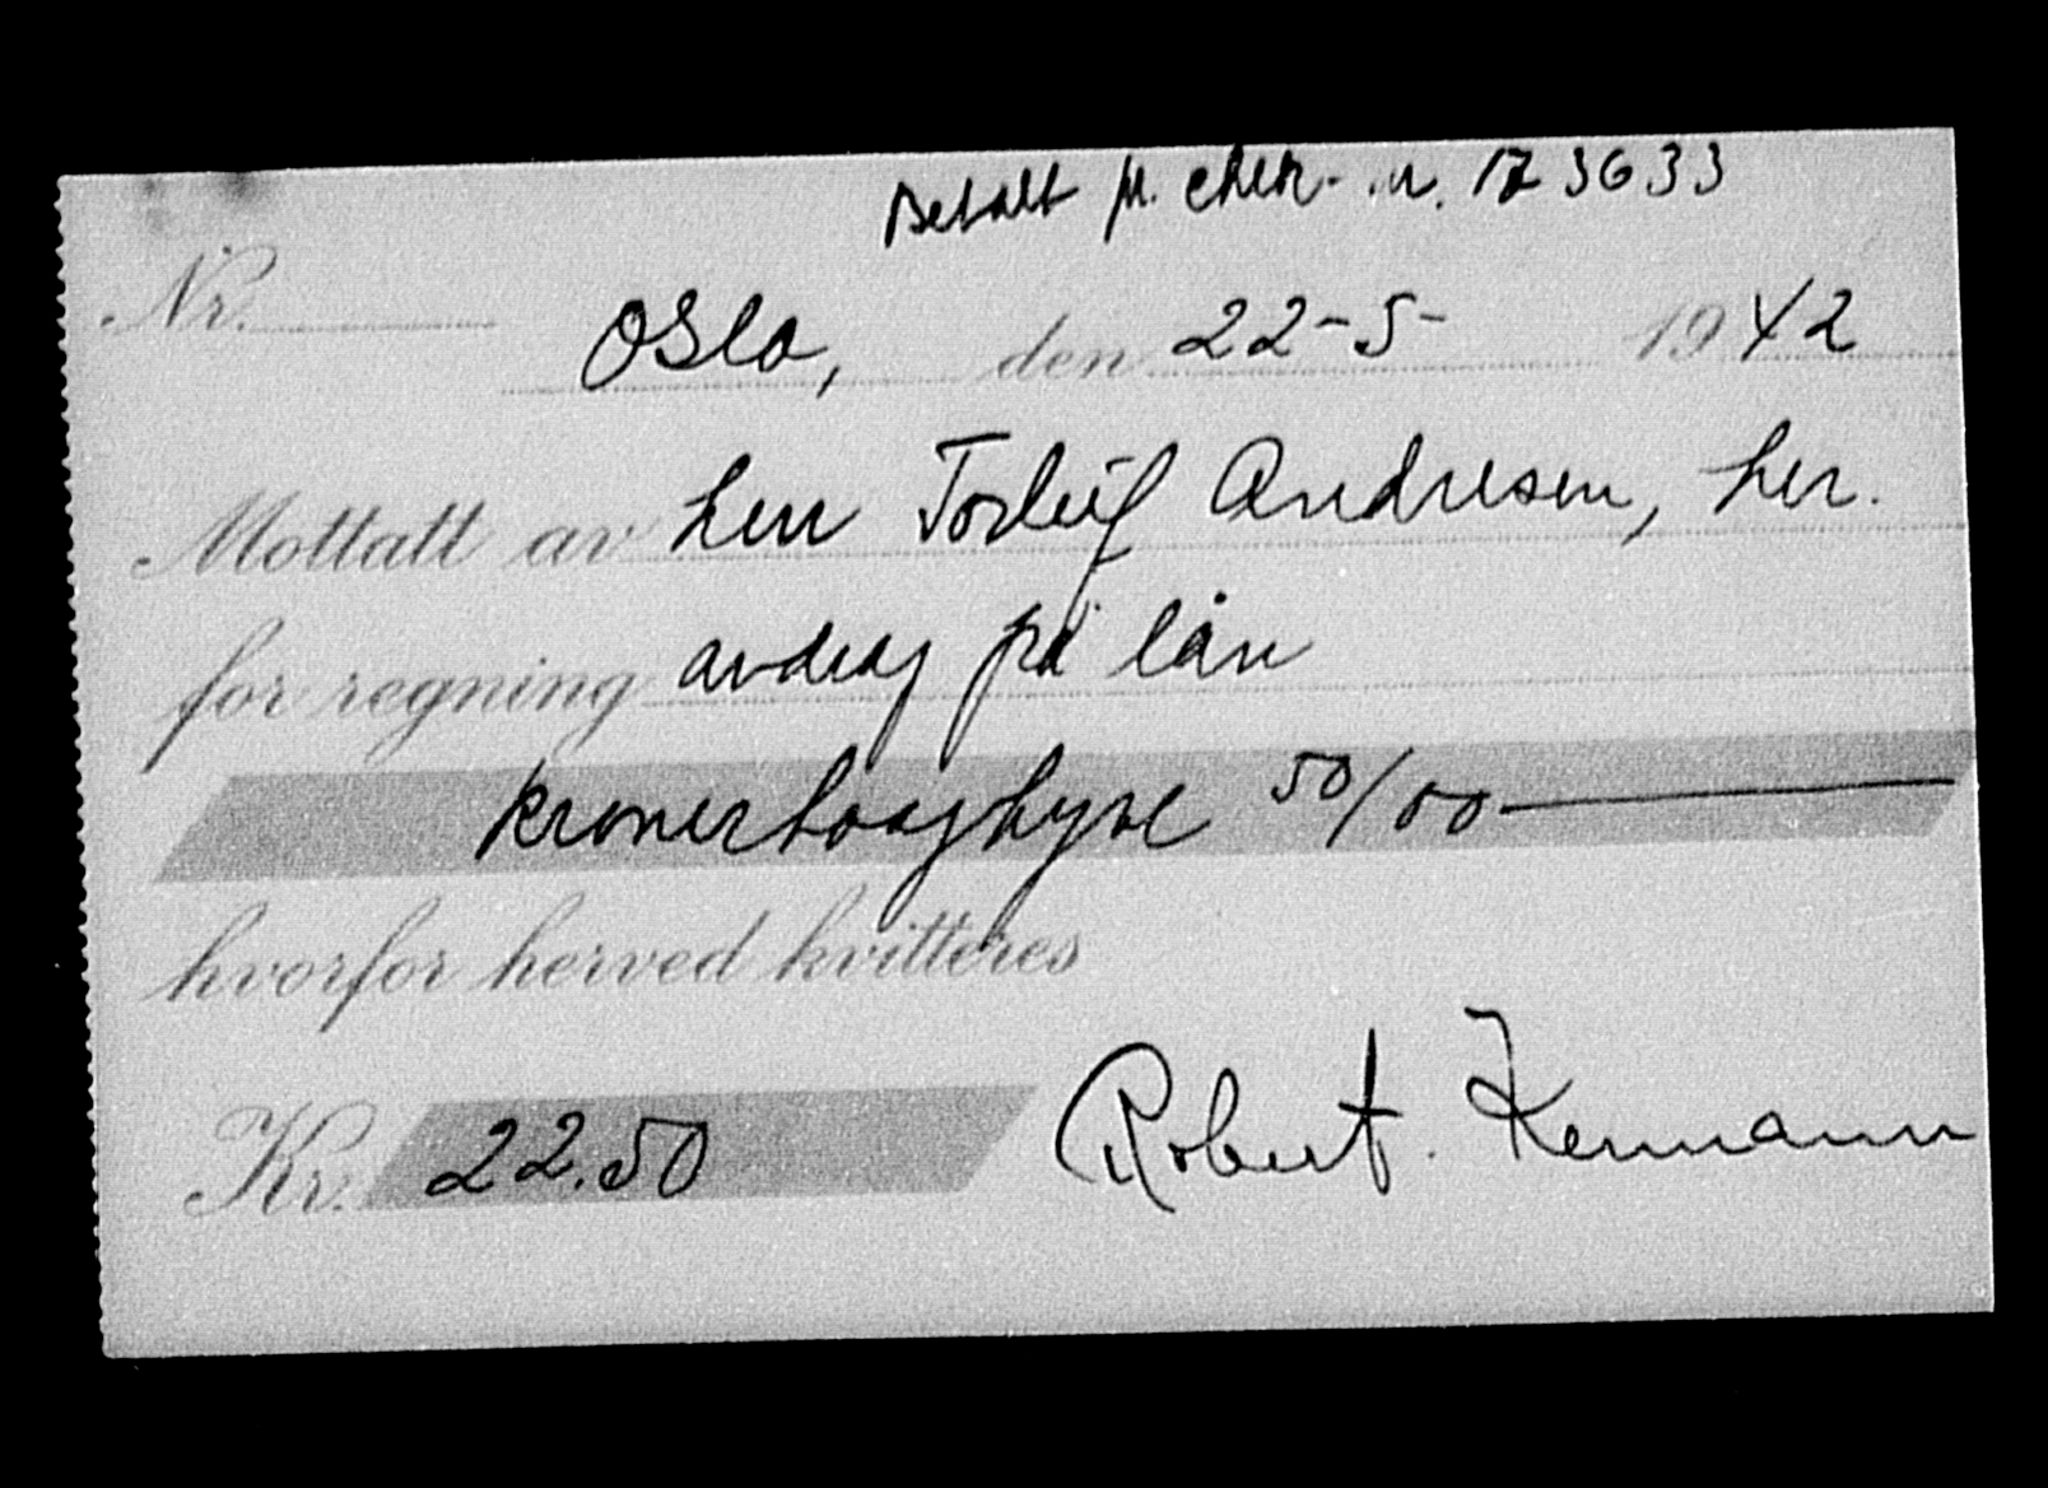 Betalt pr. chek. nr. 173633
Nr.
Oslo, den 22-5- 1942
Mottatt av herr Torleif Andresen, her.
for regning avdrag på lån
kronertoogtyve 50/00
hvorfor herved kvitteres
Kr. 22.50 Robert Kermann